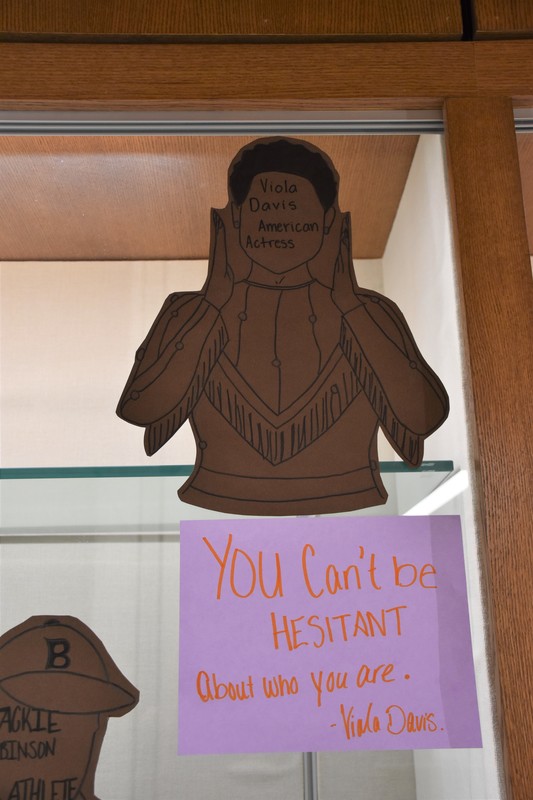 Viola
Davis
American
Actress
YOU Can't be
HESITANT
About who you are.
-Viola Davis.
B
ACKIE
BINSON
ATHLETE